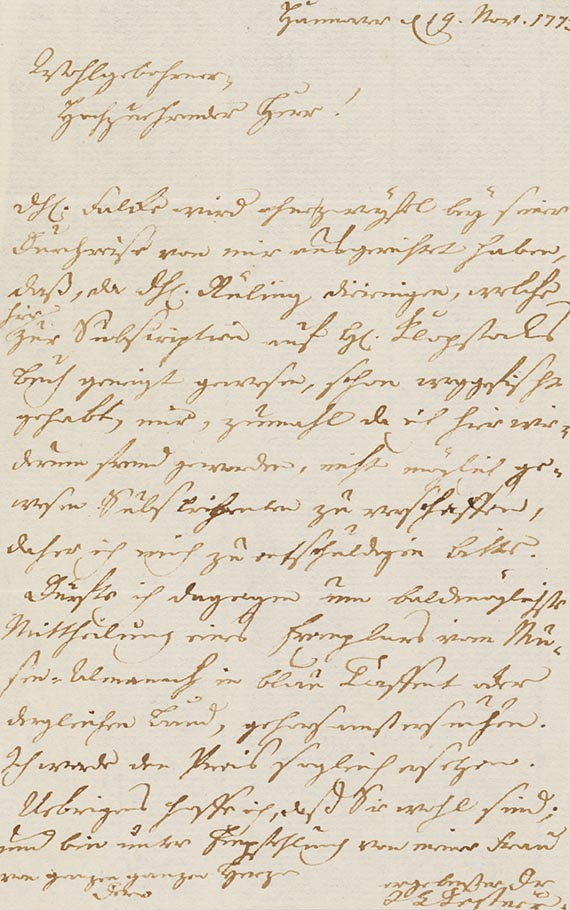 Hannover d. 19. Nov. 1773
Wohlgebohrner,
Hochzuehrender Herr!
DH. Falke wird ohnezweyfel bey seiner
Durchreise von mir ausgerichtet haben,
daß, da DH. Rüling diejenigen, welche
hier
zur Subscription auf H. Klopstocks
Buch geneigt gewesen, schon weggefischt
gehabt, mir, zumahl da ich hier wie-
derum fremd geworden, nicht möglich ge-
wesen Subscribenten zu verschaffen,
daher ich mich zu entschuldigen bitte.
Dürfte ich dagegen um baldmöglichste
Mittheilung eines Exemplars vom Mu-
sen-Almanach in blau Taffent oder
dergleichen Band, gehorsamst ersuchen.
Ich werde den Preis sogleich ersetzen.
Uebrigens hoffe ich, daß Sie wohl sind;
und bin unter Empfehlung von meiner Frau
von ganzen ganzen Herze
Dero
ergebenster Dr
Kestner.